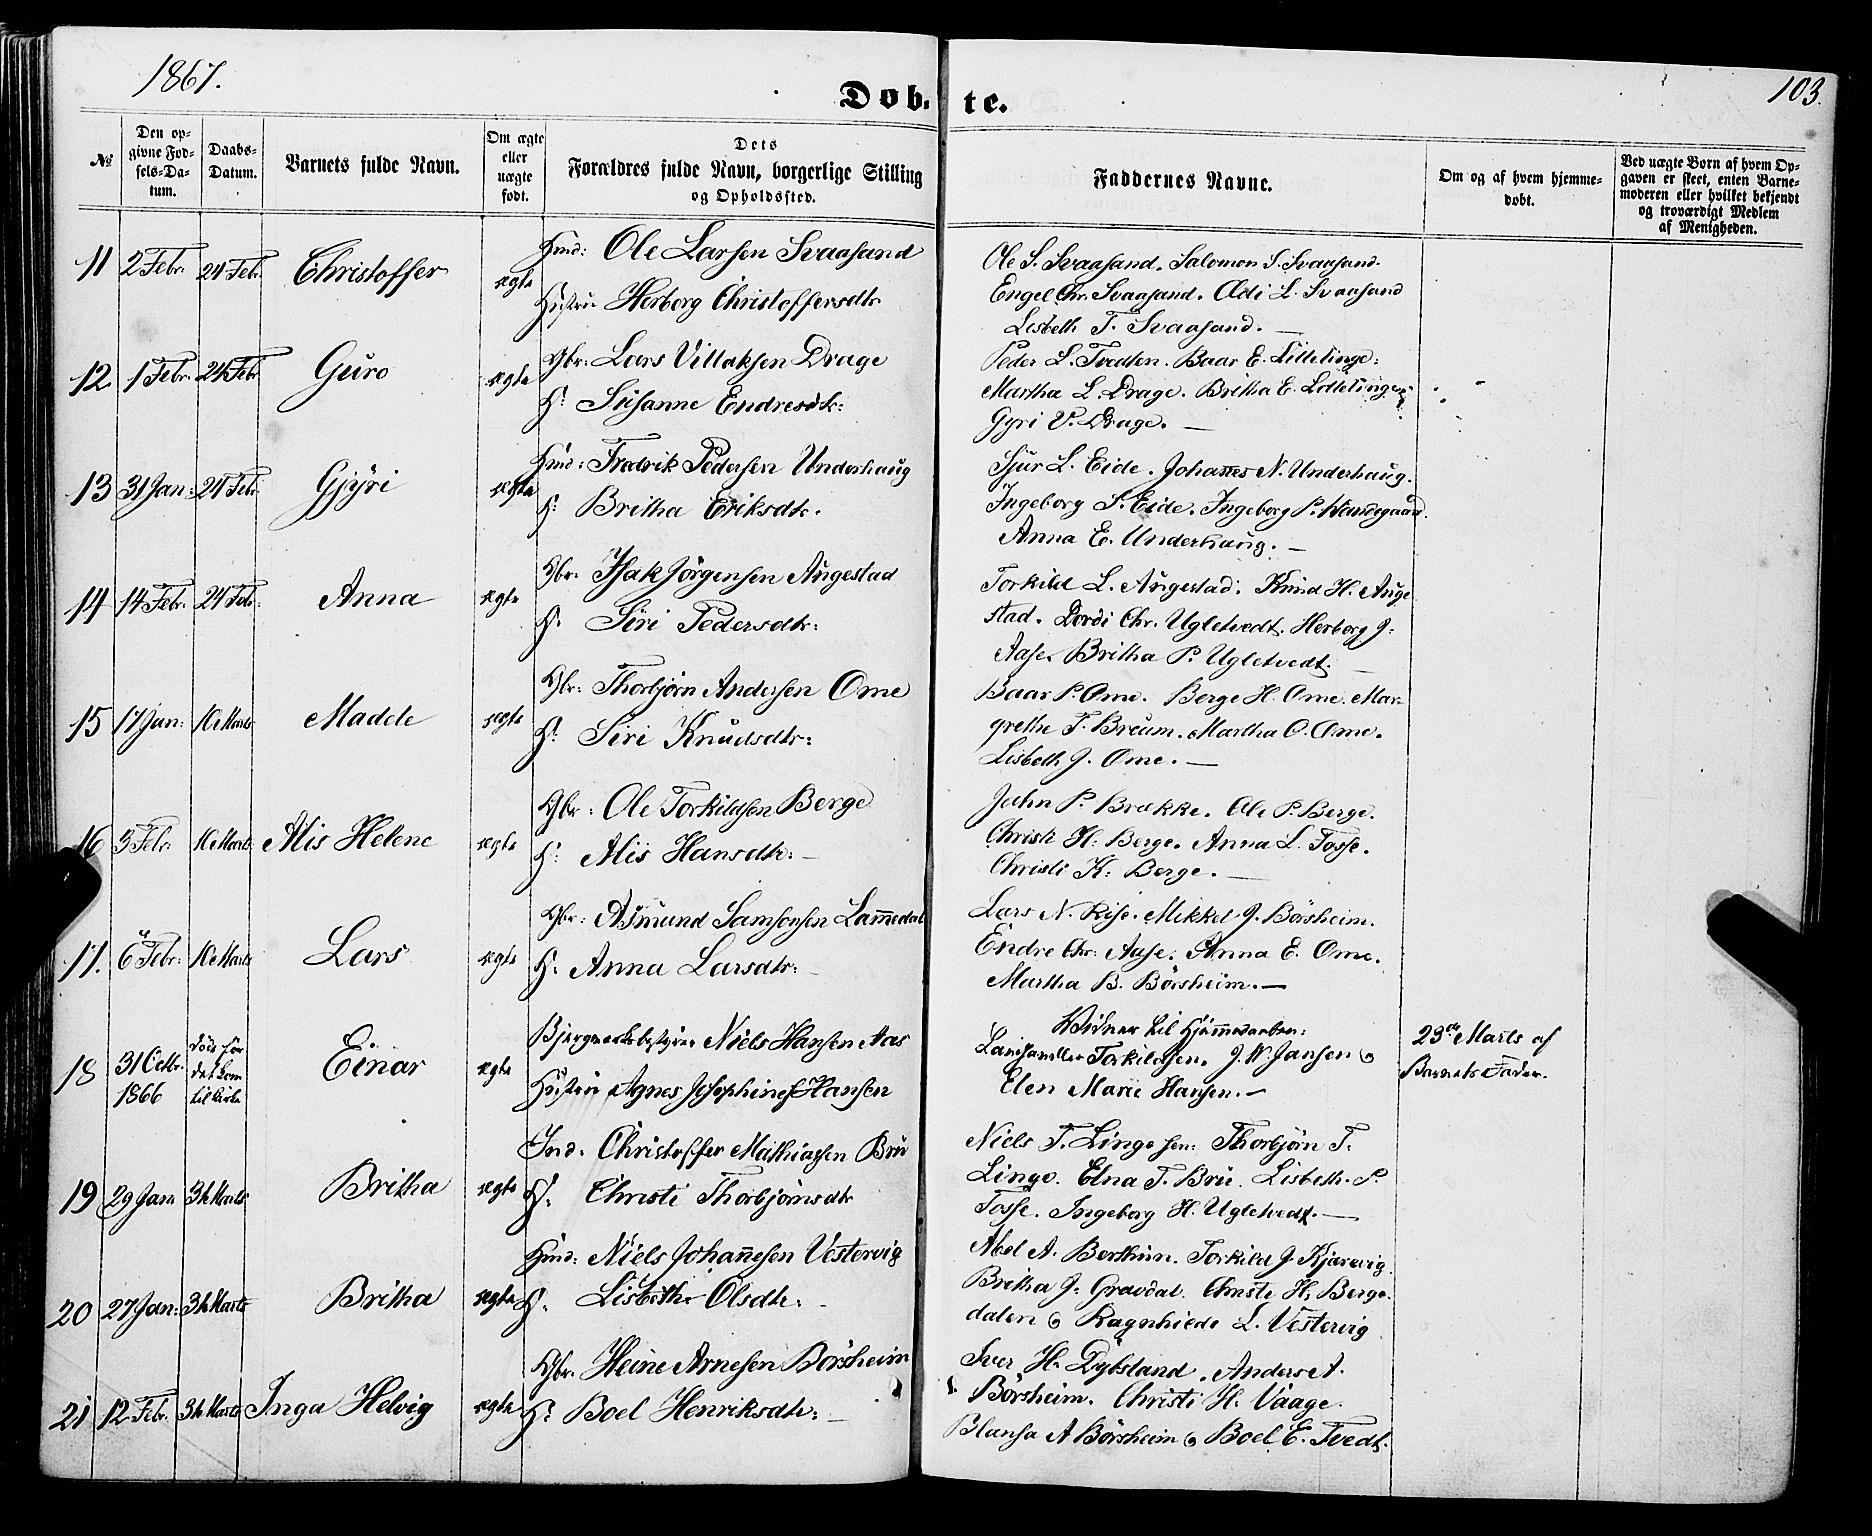 1867.
103.
Døb- te.
№
Den opgivne Fødsels-Datum.
Daabs-Datum.
Barnets fulde Navn.
Om ægte eller uægte født.
Dets Forældres fulde Navn, borgerlige Stilling og Opholdssted.
Faddernes Navne.
Om og af hvem hjemmedøbt.
Ved uægte Børn af hvem Opgaven er skeet, enten Barnemoderen eller hvilket bekjendt og troværdigt Medlem af Menigheden.
11 2 Febr. 24 Febr. Christoffer ægte
Huud: Ole Larsen Svaasand
Hustru Herborg Christoffersdtr
Ole S. Svaasand. Salomon S. Svaasand.
Engel Chr. Svaasand. Adi L. Svaasand
Lisbeth T. Svaasand. —
12 1 Febr. 24 Febr Guro ægte
Gbr: Lars Villaksen Drage
H: Susanne Endresdtr:
Peder L. Tvedten. Baar E. Lilletinge:
Martha L. Drage. Britha E. Lilletinge.
Gyri V. Drage. —
13 31 Jan: 24 Febr Gjyri ægte
Huud: Fredrik Pedersen Underhaug
H: Britha Eriksdtr.
Sjur L. Eide. Johannes N. Underhaug.
Ingeborg S. Eide. Ingeborg P. Handegaard.
Anna E. Underhaug. —
14 14 Febr. 24 Febr. Anna ægte
Gbr. Isak Jörgensen Augestad
H. Siri Pedersdtr:
Torkild L. Augestad. Knud H. Auge
stad. Dordi Chr. Ugletvedt. Herborg J.
Aase. Britha P. Ugletvedt. —
15 17 Jan: 10 Marts Madele ægte
Gbr: Thorbjörn Andersen Ome
H: Siri Knudsdtr:
Baar P. Ome. Berge H. Ome. Mar-
grethe T. Breum. Martha O. Ome.
Lisbeth J. Ome. —
16 3 Febr 10 Marts Alis Helene ægte
Gbr: Ole Torkildsen Berge
H: Alis Hansdtr: —
John P. Brække. Ole P. Berge.
Christi H. Berge. Anna L. Fosse.
Christi K: Berge. —
17. 6 Febr: 10 Marts Lars ægte
Gbr: Asmund Samsonsen Lammedal
H. Anna Larsdtr: —
Lars N. Rise. Mikkel J. Börsheim.
Endre Chr: Aase. Anna E. Ome.
Martha B. Börsheim. —
18 31 Octbr. 1866 döde för det kom til Kirke Einar ægte
Bjergværksbestyrer Niels Hansen Aas
Hustru Agnes Josephine Hansen
Vidner til Hjemmedaaben:
Landhandler Torkildsen. J. W. Jansen og
Elen Marie Hansen. —
23de Marts af
Barnets Fader.
19 29 Janr 31 Marts Britha ægte
Ind. Christoffer Mathiasen Bru
H. Christi Thorbjörnsdtr
Niels T. Linge sen: Thorbjörn T.
Linge. Elna T. Bru. Lisbeth P.
Fosse. Ingeborg H. Ugletvedt. —
20 27 Jan: 31 Marts Britha ægte
Huud: Niels Johannesen Vestervig
H. Lisbeth Olsdtr. —
Abel A. Torkild J. Kjærevig.
Britha J. Gravdal. Christi H. Berge-
dalen og Ragnhilde L. Vestervig
21 12 Febr. 31 Marts Inga Helvig ægte
Gbr. Heine Arnesen Börsheim
H: Boel Henriksdtr: —
Iver H. Dybsland. Anders A.
Börsheim. Christi H. Vaage.
Blansa A Börsheim og Boel E. Tvedt.